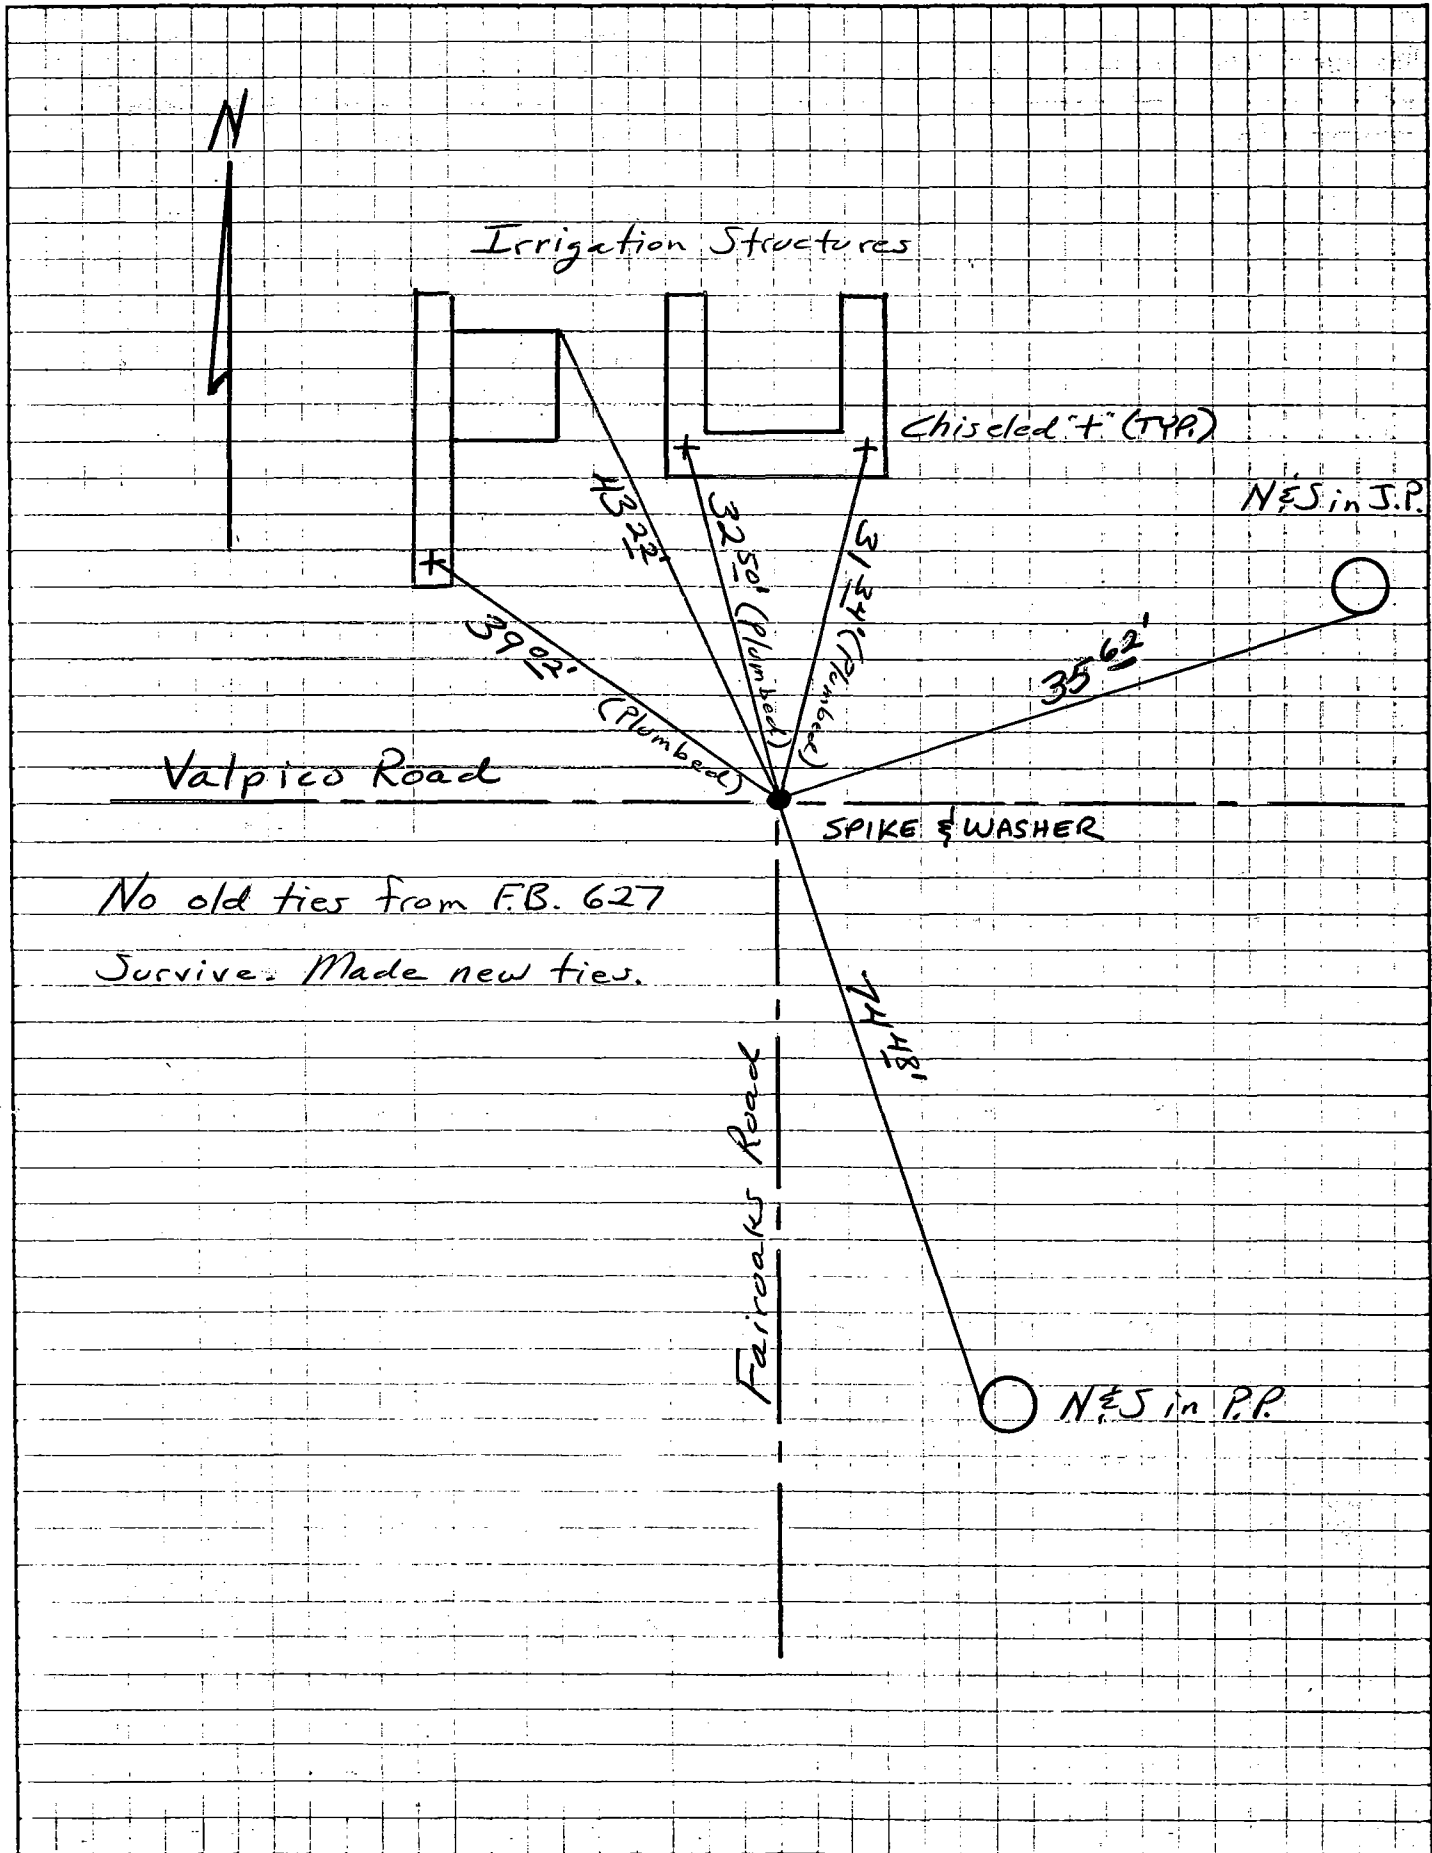 N
Irrigation Structures
Chiseled "+" (TYP.)
N&S in J.P.
43.22'
32.50' (Plumbed)
31.34' (Plumbed)
39.02' (Plumbed)
35.62'
Valpico Road
SPIKE & WASHER
No old ties from F.B. 627
Survive. Made new ties.
74.48'
Fairoaks Road
N&S in P.P.